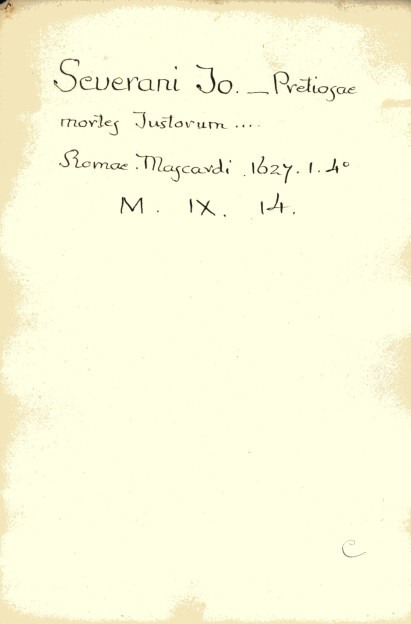 Severani Jo. _ Pretiosae
mortes Justorum ....
Romae. Mascardi. 1627. 1. 4°
M. IX. 14.
C